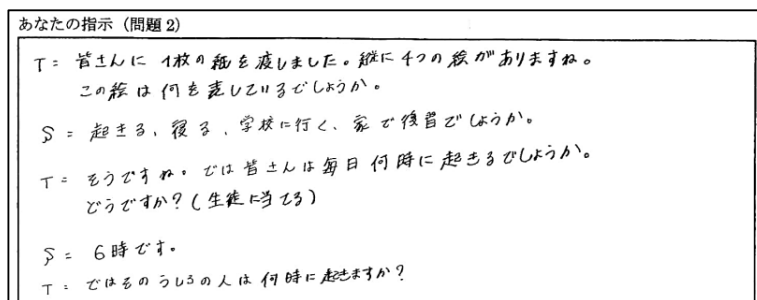 あなたの指示（問題２）
T： 皆さんに 1枚の紙を渡しました。縦に4つの絵がありますね。
この絵は何を表しているでしょうか。
S： 起きる、寝る、学校に行く、家で復習でしょうか。
T： そうですね。では皆さんは毎日何時に起きるでしょうか。
どうですか？（生徒に当てる）
S： 6時です。
T： ではそのうしろの人は何時に起きますか？